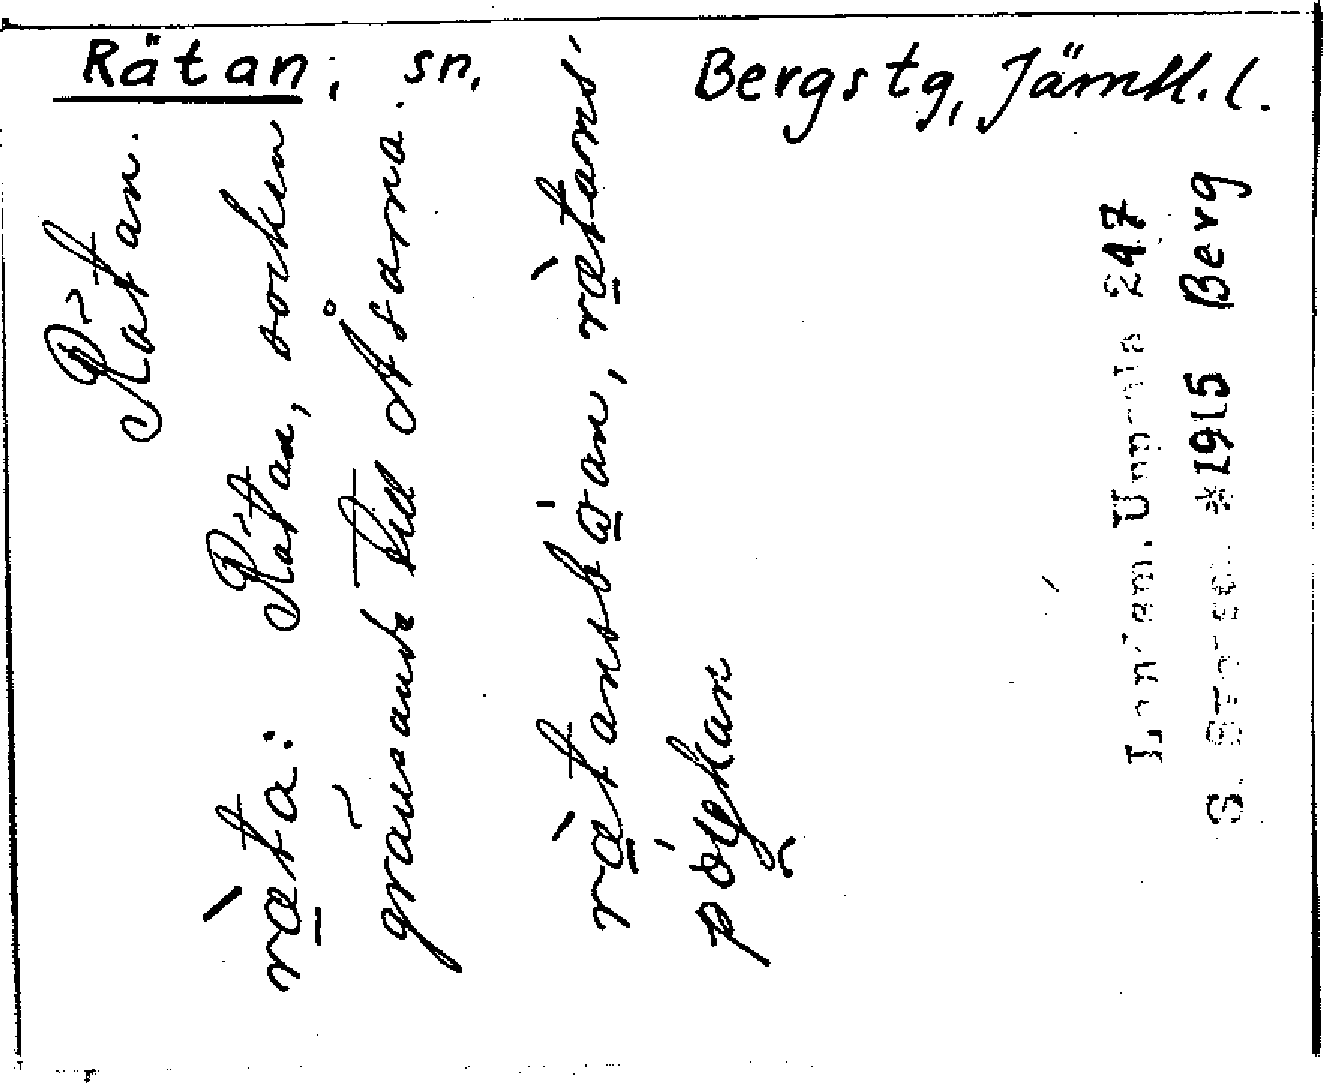 Rätan, sn, Bergs tg, Jämtl. l.
Rätan.
ræ̀ta: Rätan, socken
gränsande till Åsarna.
rætansb an, rætans
Landsm. Uppsala 247
S. *1915 Berg